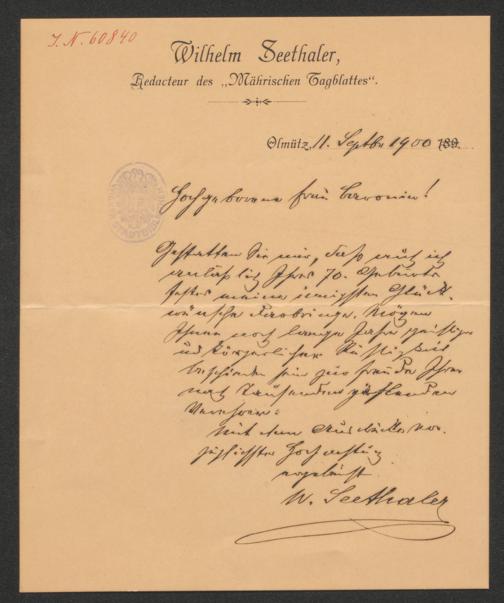 J. N. 60840
Wilhelm Seethaler,
Redacteur des „Mährischen Tagblattes“.
Olmütz, 11. Septbr 1900 189
Hochgeborene Frau Baronin!
Gestatten Sie mir, daß auch ich
anläßlich Ihres 70. Geburts
festes meine innigsten Glück-
wünsche darbringe. Mögen
Ihnen noch lange Jahre geistiger
und körperlicher Rüstigkeit
beschieden sein zur Freude Ihrer
nach Tausenden zählenden
Verehrer.
Mit dem Ausdrucke vor-
züglichster Hochachtung
ergebenst
W. Seethaler